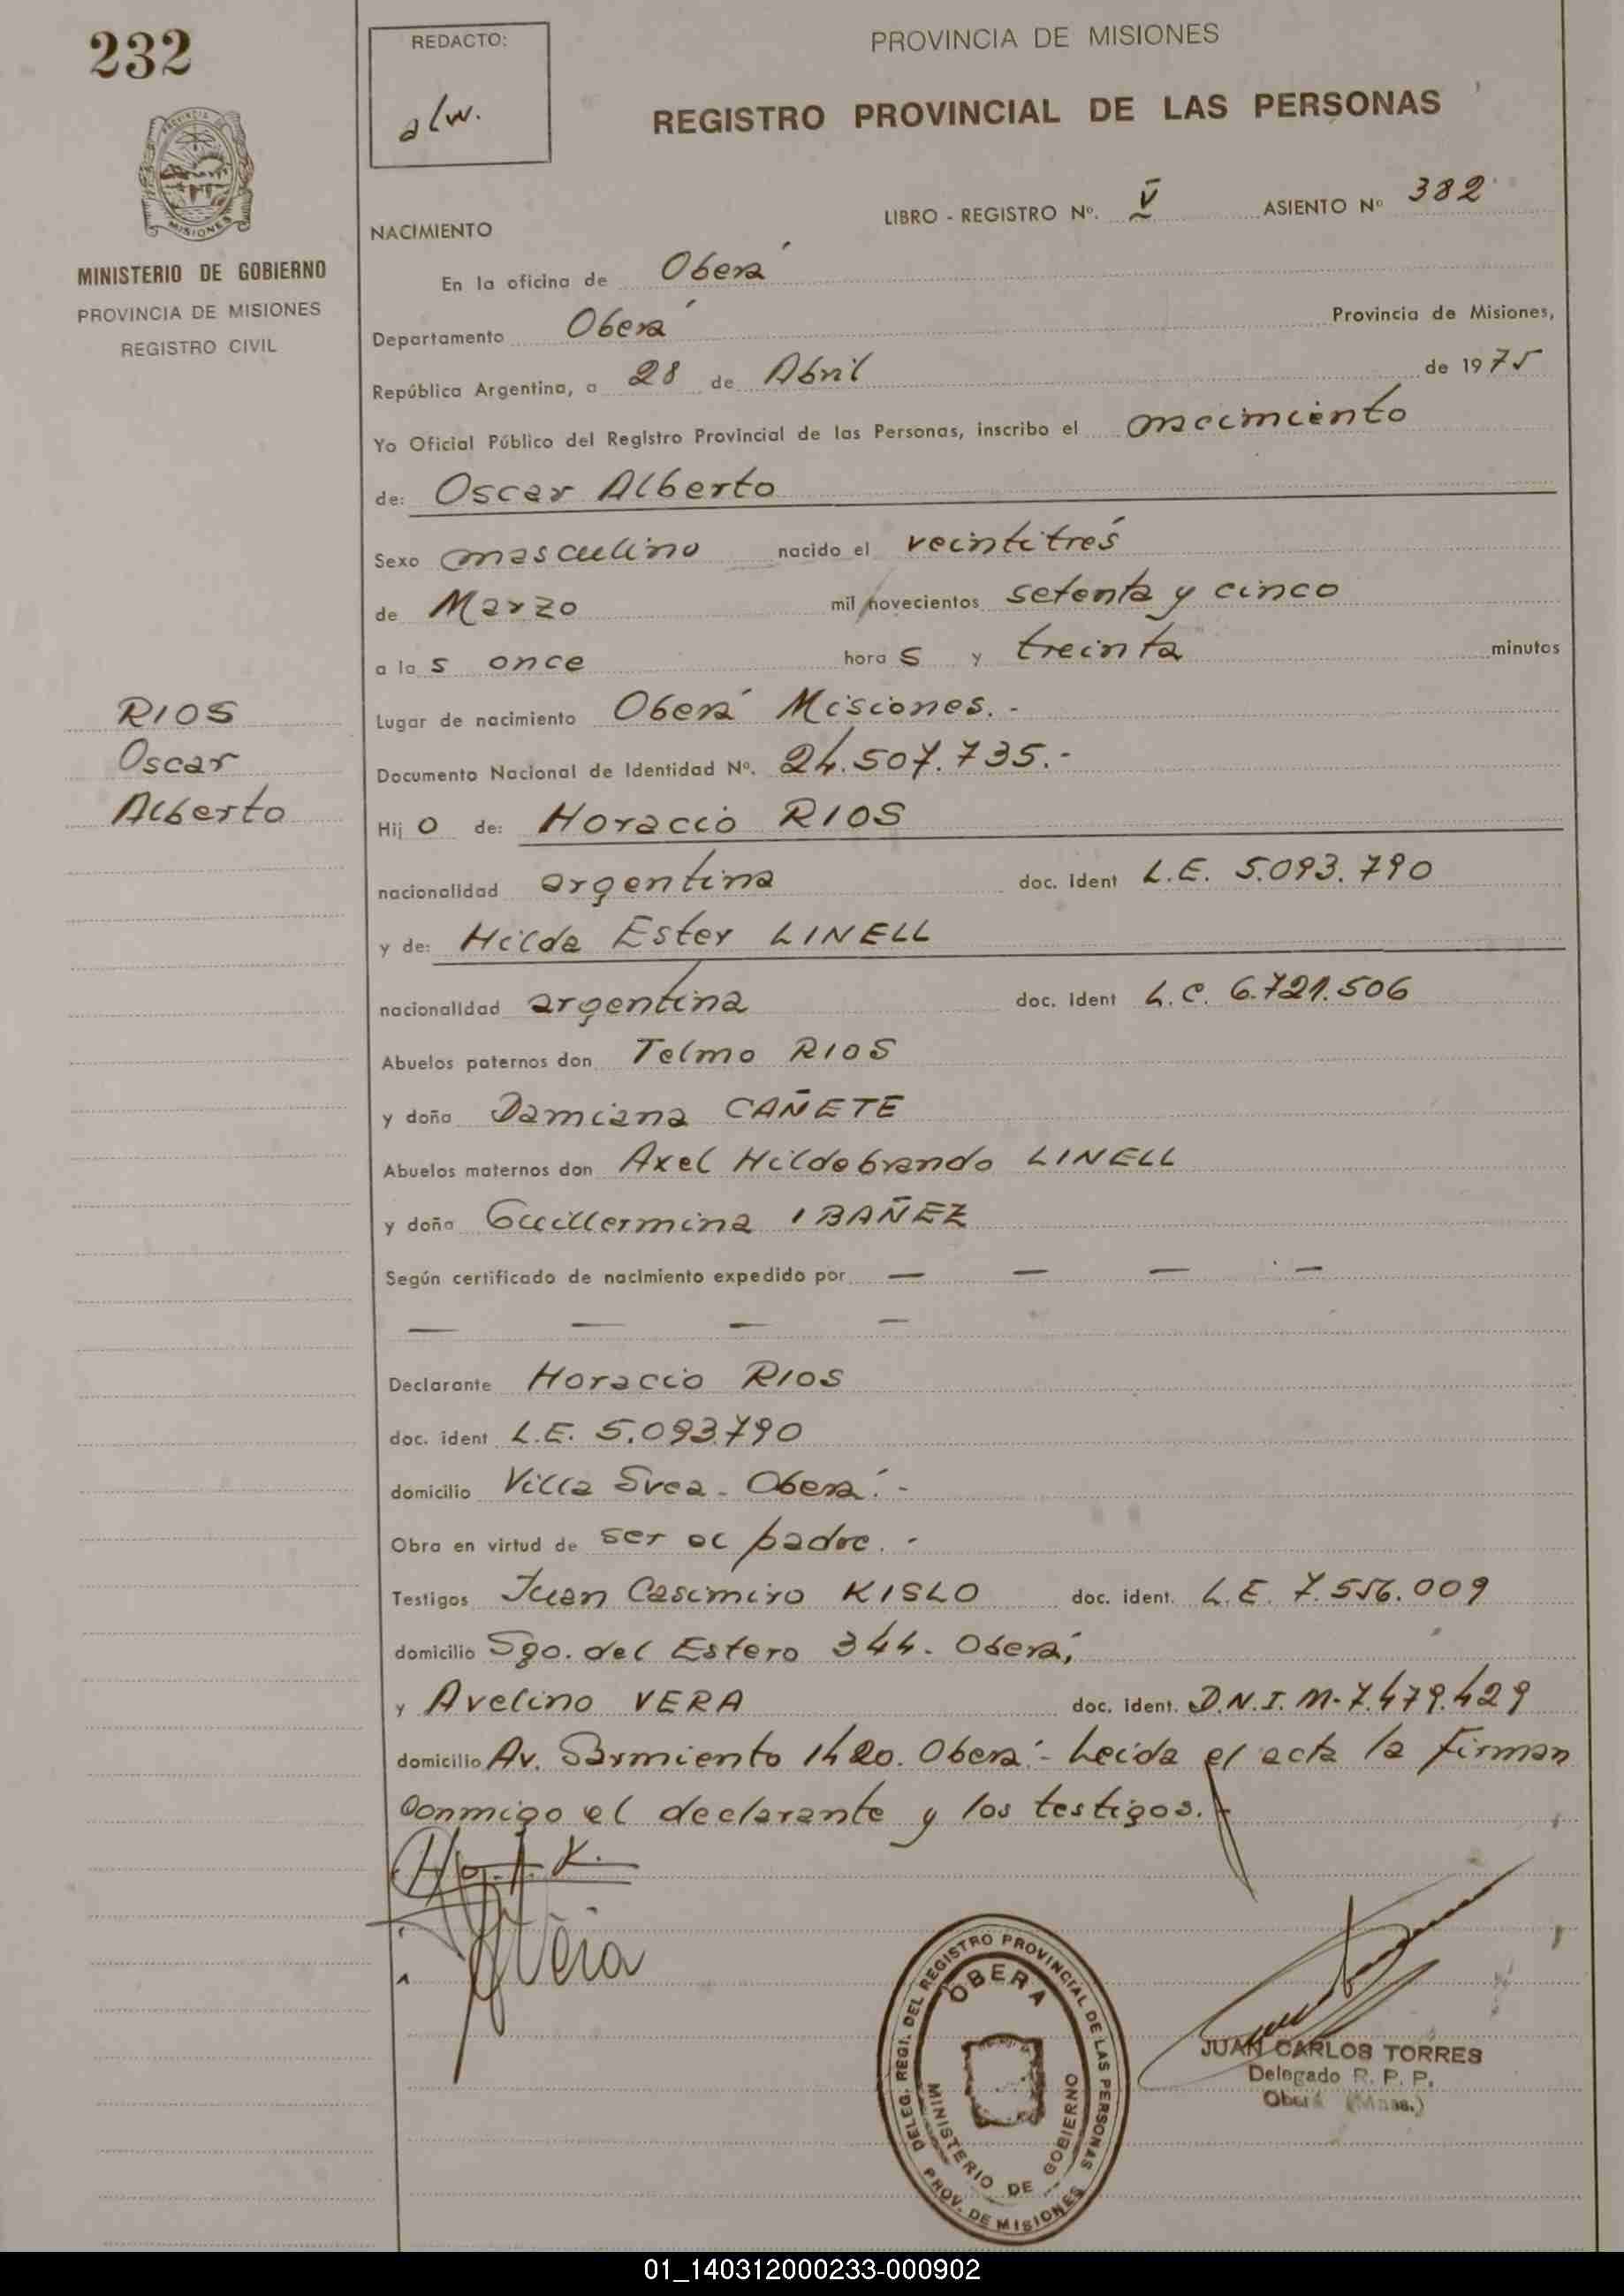 232
REDACTO:
alw.
PROVINCIA DE MISIONES
REGISTRO PROVINCIAL DE LAS PERSONAS
PROVINCIA DE
MISIONES
MINISTERIO DE GOBIERNO
PROVINCIA DE MISIONES
REGISTRO CIVIL
LIBRO - REGISTRO Nº. V ASIENTO Nº 382
NACIMIENTO
En la oficina de Oberá
Departamento Oberá Provincia de Misiones,
República Argentina, a 28 de Abril de 1975
Yo Oficial Público del Registro Provincial de las Personas, inscribo el nacimiento
de: Oscar Alberto
Sexo masculino nacido el veintitrés
de Marzo mil novecientos setenta y cinco
a las once horas y treinta minutos
RIOS
Oscar
Alberto
Lugar de nacimiento Oberá Misiones.-
Documento Nacional de Identidad Nº. 24.507.735.-
Hijo de: Horacio RIOS
nacionalidad argentina doc. Ident L.E. 5.093.790
y de: Hilda Ester LINELL
nacionalidad argentina doc. Ident L.C. 6.721.506
Abuelos paternos don Telmo RIOS
y doña Damiana CAÑETE
Abuelos maternos don Axel Hildebrando LINELL
y doña Guillermina IBAÑEZ
Según certificado de nacimiento expedido por — — — —
— — — —
Declarante Horacio RIOS
doc. ident L.E. 5.093.790
domicilio Villa Svea - Oberá.-
Obra en virtud de ser el padre.-
Testigos Juan Casimiro KISLO doc. ident. L.E. 7.556.009
domicilio Sgo. del Estero 344. Oberá,
y Avelino VERA doc. ident. D.N.I. M-7.479.429
domicilio Av. Sarmiento 1420. Oberá.- Leída el acta la firman
conmigo el declarante y los testigos.-
Vera
DELEG. REGI. DEL REGISTRO PROVINCIAL DE LAS PERSONAS
OBERA
MINISTERIO DE GOBIERNO
PROV. DE MISIONES
JUAN CARLOS TORRES
Delegado R. P. P.
Oberá (Mnes.)
01_140312000233-000902